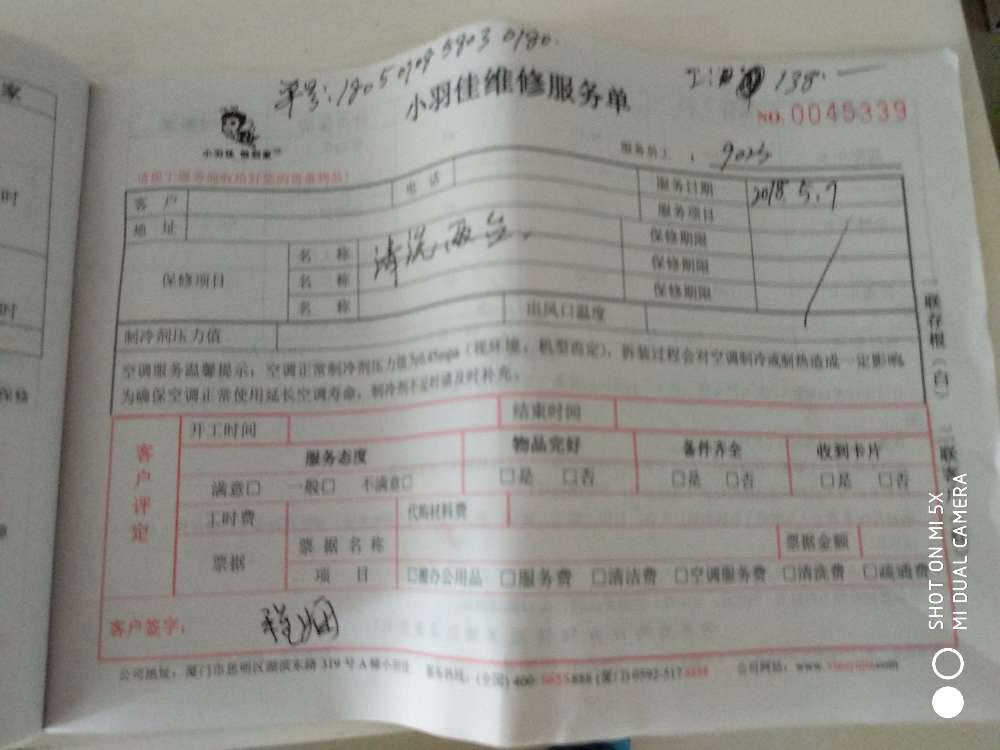 家
单号:180509095803 0180.
138. —
小羽佳维修服务单
NO. 0045339
小羽佳
服务员工: 9023
客户
电话
服务日期
2018. 5. 9
地址
服务项目
保修项目
名称
清洗两台.
保修期限
名称
保修期限
名称
保修期限
制冷剂压力值
出风口温度
空调服务温馨提示:空调正常制冷剂压力值为0.45mpa(视环境、机型而定),拆装过程会对空调制冷或制热造成一定影响,
为确保空调正常使用延长空调寿命,制冷剂不足时请及时补充。
客户评定
开工时间
结束时间
服务态度
物品完好
备件齐全
收到卡片
满意□ 一般□ 不满意□
□是 □否
□是 □否
□是 □否
工时费
代购材料费
票据
票据名称
票据金额
项目
□办公用品 □服务费 □清洁费 □空调服务费 □清洗费 □疏通费
客户签字:
公司地址:厦门市思明区湖滨东路 319 号 A 幢
服务热线:(全国) 400- -888 (厦门) 0592-517
公司网站:www. .com
一联存根(白)
二联客
时
时
保修
SHOT ON MI 5X
MI DUAL CAMERA